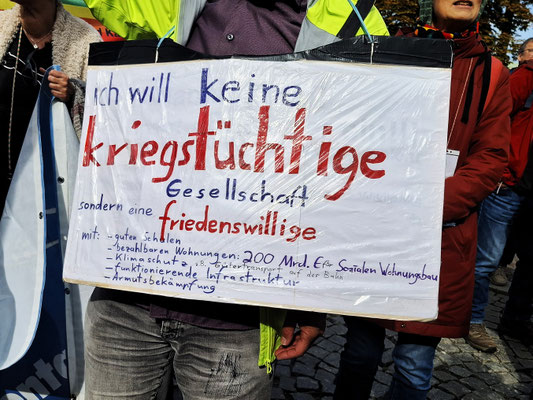 ich will keine
kriegstüchtige
Gesellschaft
sondern eine friedenswillige
mit: - guten Schulen
- bezahlbaren Wohnungen: 200 Mrd. € für Sozialen Wohnungsbau
- Klimaschutz z.B. Gütertransport auf der Bahn
- funktionierende Infrastruktur
- Armutsbekämpfung